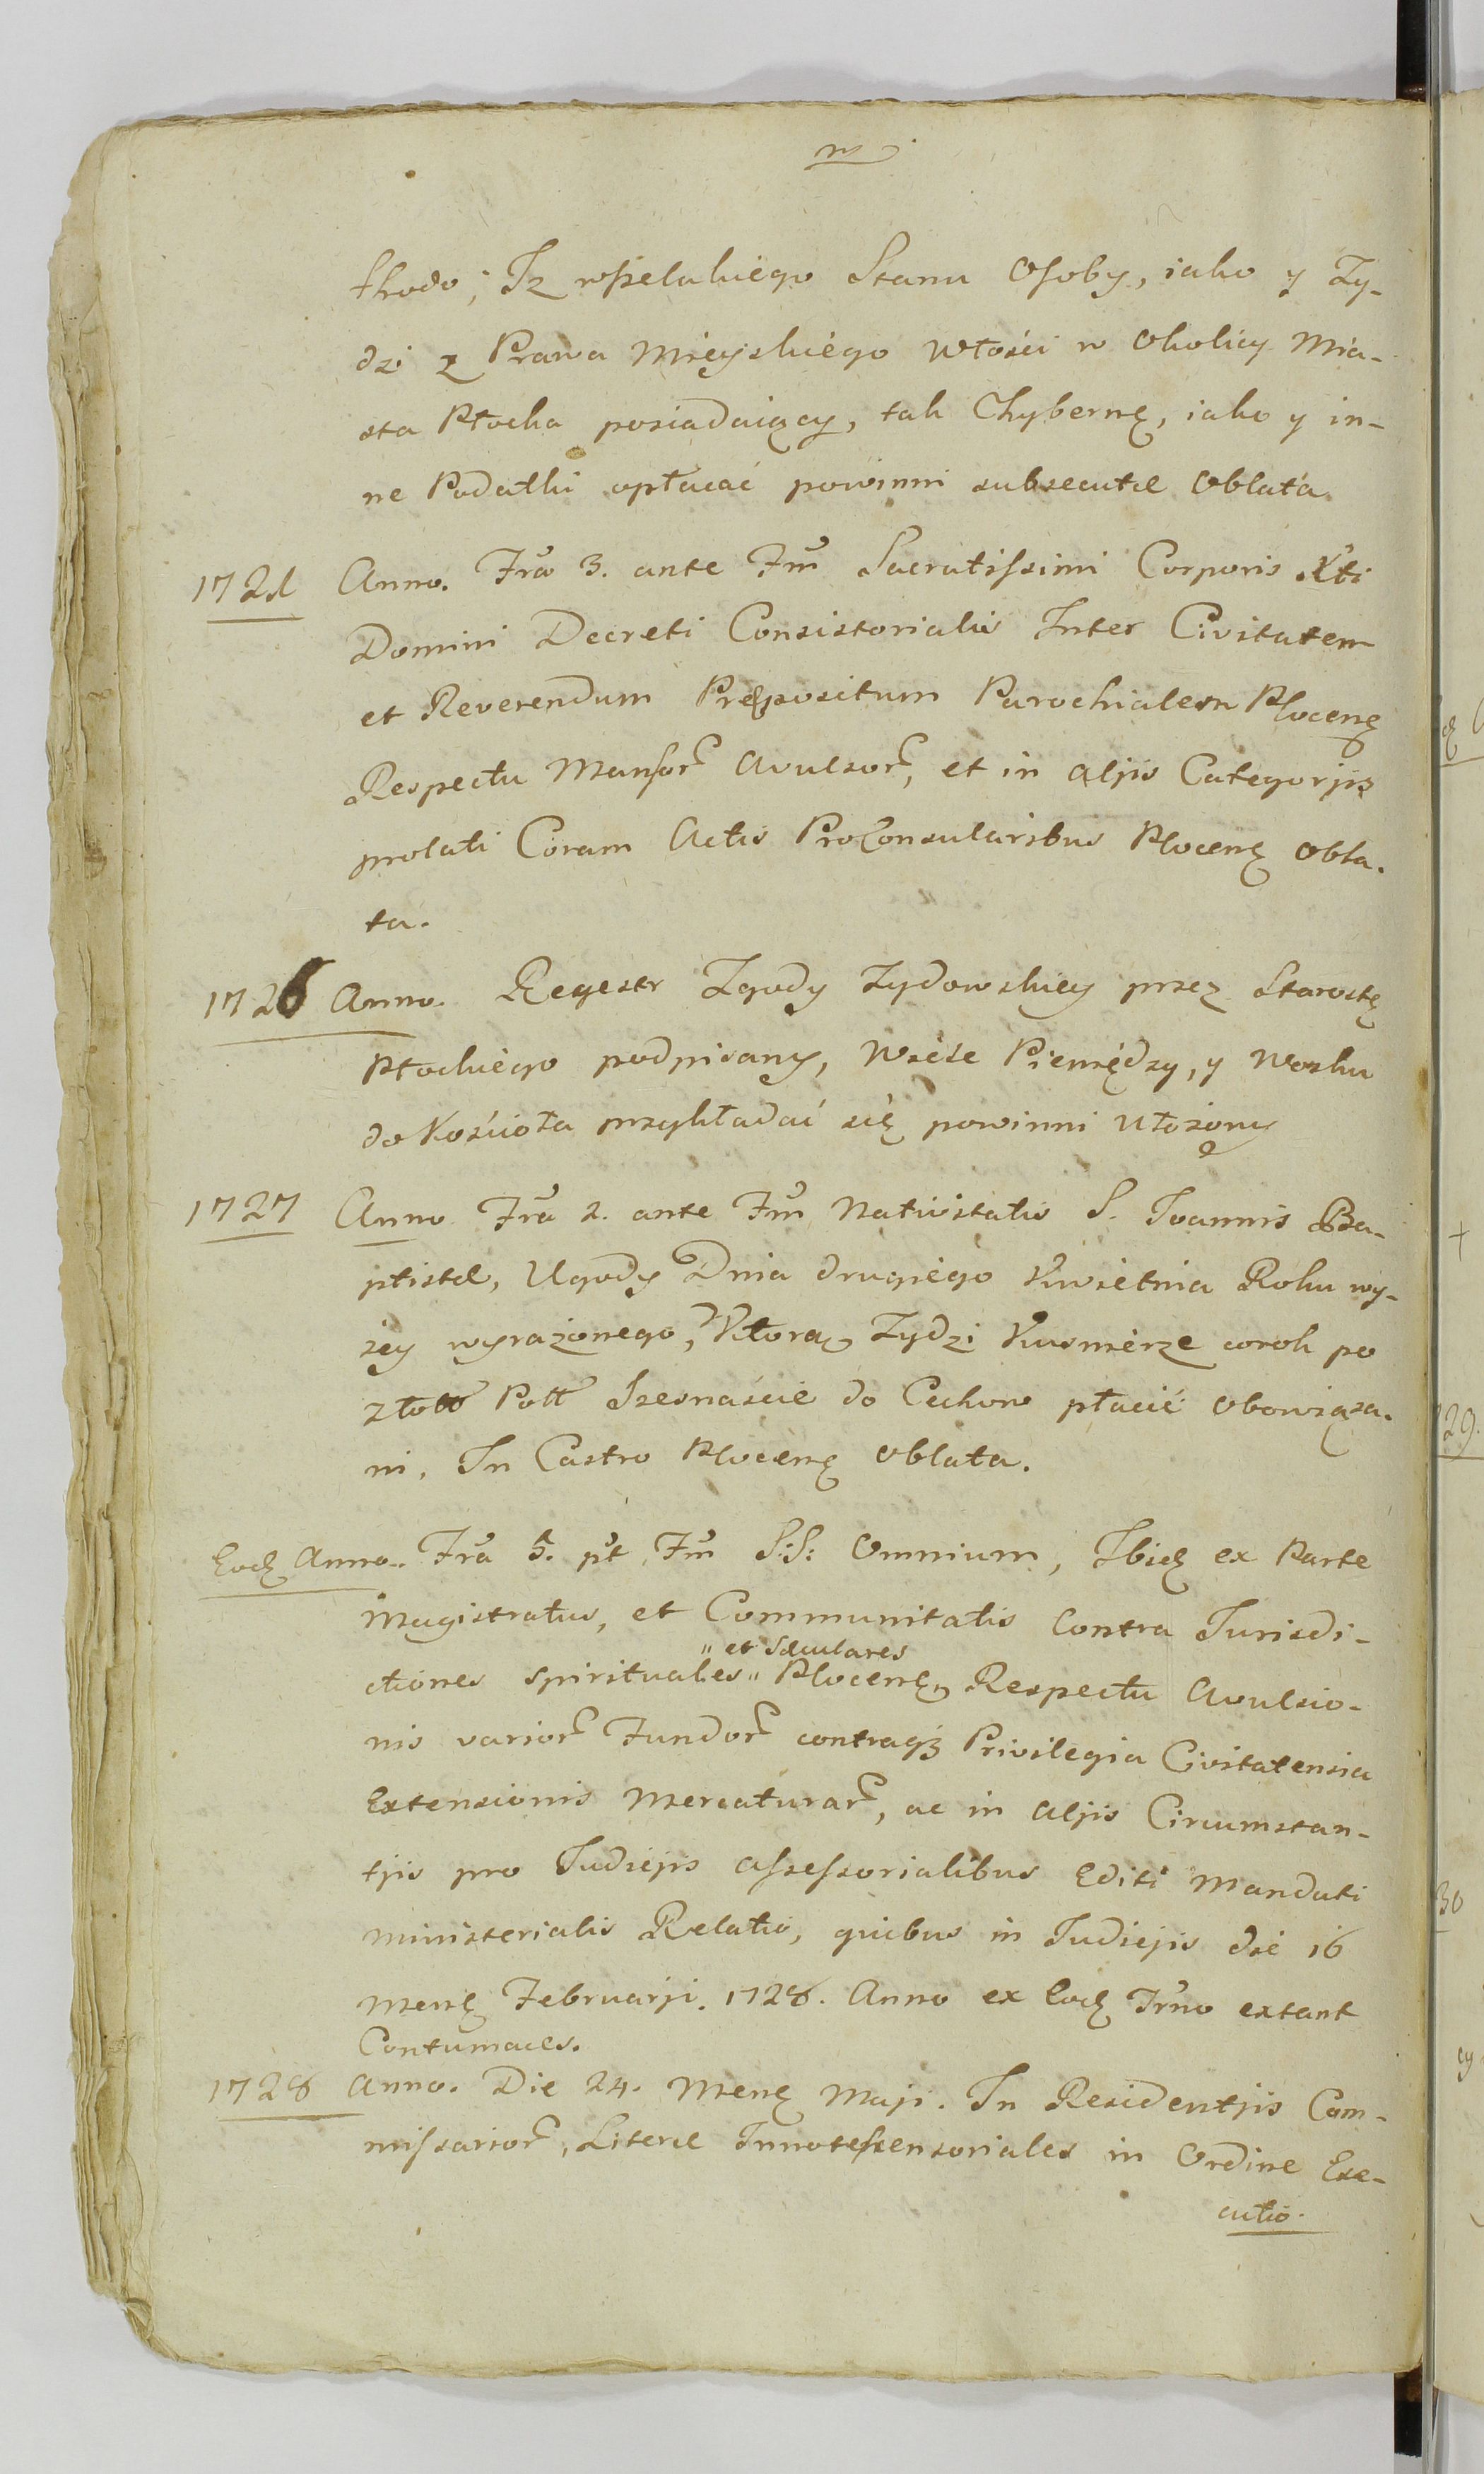 thodo; Iz wszelakiego Stanu Osoby, iako y Zy-
dzi z Prawa Mieyskiego Włości w Okolicy Mia-
sta Płocka posiadaiący, tak Chybernę, iako y in-
ne Podatki opłacać powinni subsecutæ Oblata.
1721 Anno. Fra 3. ante Fm̃ Sacratissimi Corporis Xti
Domini Decreti Consistorialis Inter Civitatem
et Reverendum Præpositum Parochialem Plocenẽ
Respectu Mansor̃ Avulsor̃, et in aljis Categorjis
prolati Coram Actis ProConsularibus Plocenẽ Obla-
ta.
1726 Anno. Regestr Zgody Zydowskiey przez Starostę
Płockiego podpisany, Wiele Pieniędzy, y Wosku
do Kościoła przykładać się powinni Ułożony
1727 Anno Fra 2. ante Fm̃ Nativitatis S. Joannis Ba-
ptistæ, Ugody Dnia drugiego Kwietnia Roku wy-
żey wyrażonego, Ktorą Zydzi Kusnierze corok po
złott Poll Szesnaście do Cechow płacić Obowiąza-
ni. In Castro Plocenẽ Oblata.
Eodẽ Anno. Fra 5. pt Fm̃ S:S: Omnium, Ibidẽ ex Parte
Magistratus, et Communitatis Contra Jurisdi-
" et Sæculares
ctiones spirituales " Plocenẽ, Respectu Avulsio-
nis varior̃ Fundor̃ contraqʒ Privilegia Civitatensia
Extensionis Mercaturar̃, ac in aljis Circumstan-
tjis pro Judicjis assessorialibus Editi Mandati
Ministerialis Relatio, quibus in Judicjis die 16
Menẽ Februarji. 1728. Anno ex Eodẽ Trno extant
Contumaces.
1728 Anno. Die 24. Menẽ Maji. In Residentjis Com-
missarior̃, Literæ Innotescensoriales in Ordine Exe-
cutio.